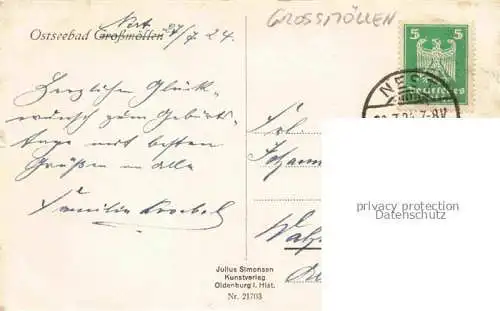 Nest
Ostseebad Großmöllen 27/7 24.
GROSSMÖLLEN
5 5
Deutsches
NEST
7-8V
Herzlichen Glück-
wunsch zum Geburts-
tage mit besten
Grüßen an alle
Familie
Frl.
privacy protection
Datenschutz
Julius Simonsen
Kunstverlag
Oldenburg i. Hlst.
Nr. 21703